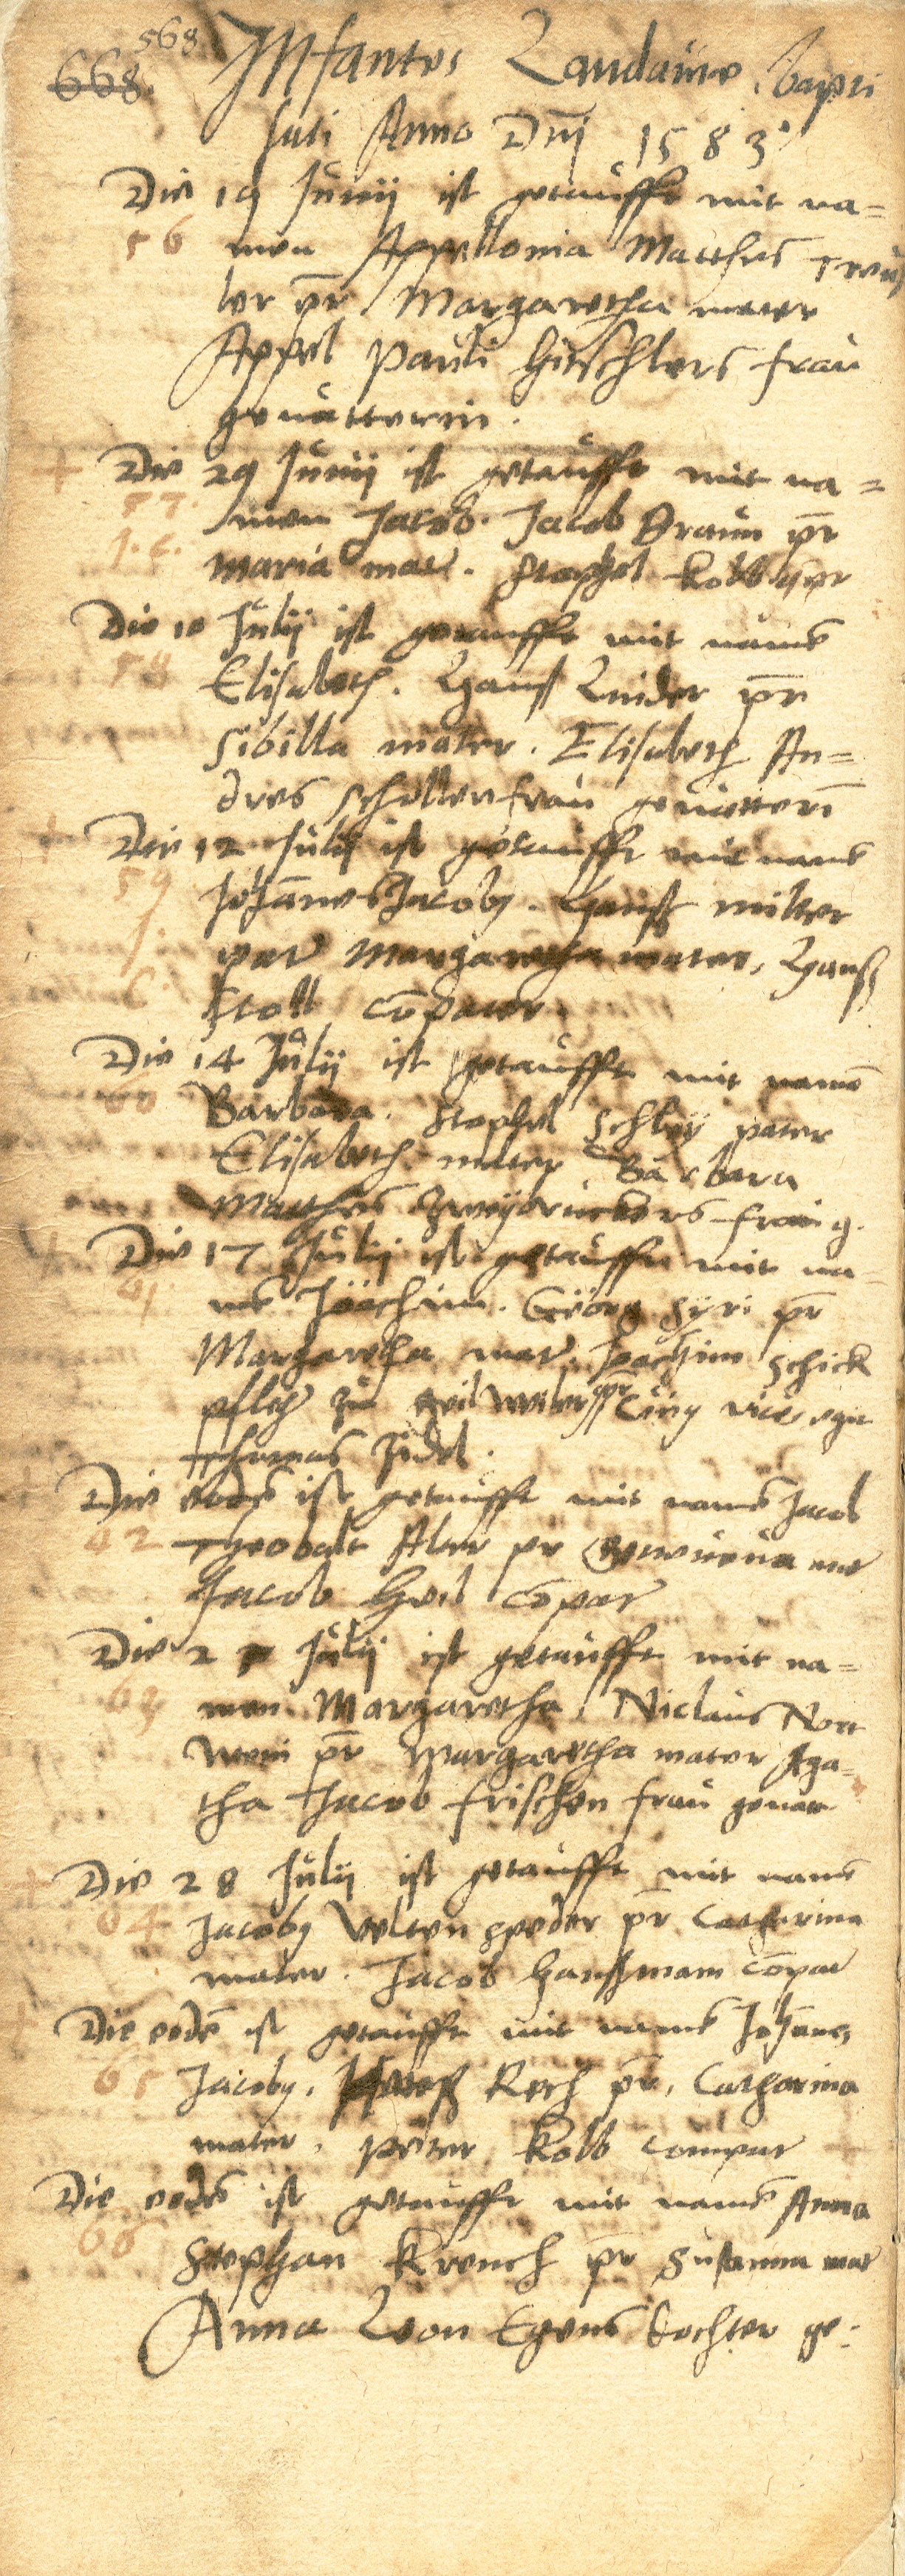 568
668.
Infantes Landauie bapti
sati Anno Dnj 1583
Die 19 Junij ist getaufft mit na=
56 men Appellonia Mattheus
ler pr Margaretha mater
Appel Pauli Hirschlers frau
gevatterin.
Die 29 Junij ist getaufft mit na=
57. men Jacob. Jacob Braun pr
J. C. Maria mat. Stophel Kolb
Die 10 Julij ist getaufft mit namē
58 Elisabeth. Hanß Linder pr
Sibilla mater. Elisabeth An=
dres Scholler frau gevatterī
Die 12 Julij ist getaufft mit namē
59 Johānnes Jacoby. Hanß Miller
pat Margaretha mater, Hanß
Stoll cōpater
Die 14 Julij ist getaufft mit namē
60 Barbara. Stophel Schley pater
Elisabeth mater Barbara
Mattheus Zweybruckers frau g.
Die 17 Julij ist getaufft mit na=
61 mē Joachim. Georg Syri pr
Margaretha mat. Joachim Schick
pfleg zu
Thomas Zidel.
Die eodē ist getaufft mit namē Jacob
62 Theobalt pr mr
Jacob Heil cōpat
Die 21 Julij ist getaufft mit na=
63 men Margaretha. Niclaus Nort
wein pr Margaretha mater Aga=
tha Jacob Frischen frau gevatt
Die 28 Julij ist getaufft mit namē
64 Jacoby Velten Speder pr Catharina
mater. Jacob Hanßmann cōpat
Die eodē ist getaufft mit namē Johānes
65 Jacoby. Rech pr, Catharina
mater, Peter Kolb compat
Die eodē ist getaufft mit namē Anna
66 Stephan Krench pr Susanna mat
Anna Leon Egens tochter ge: